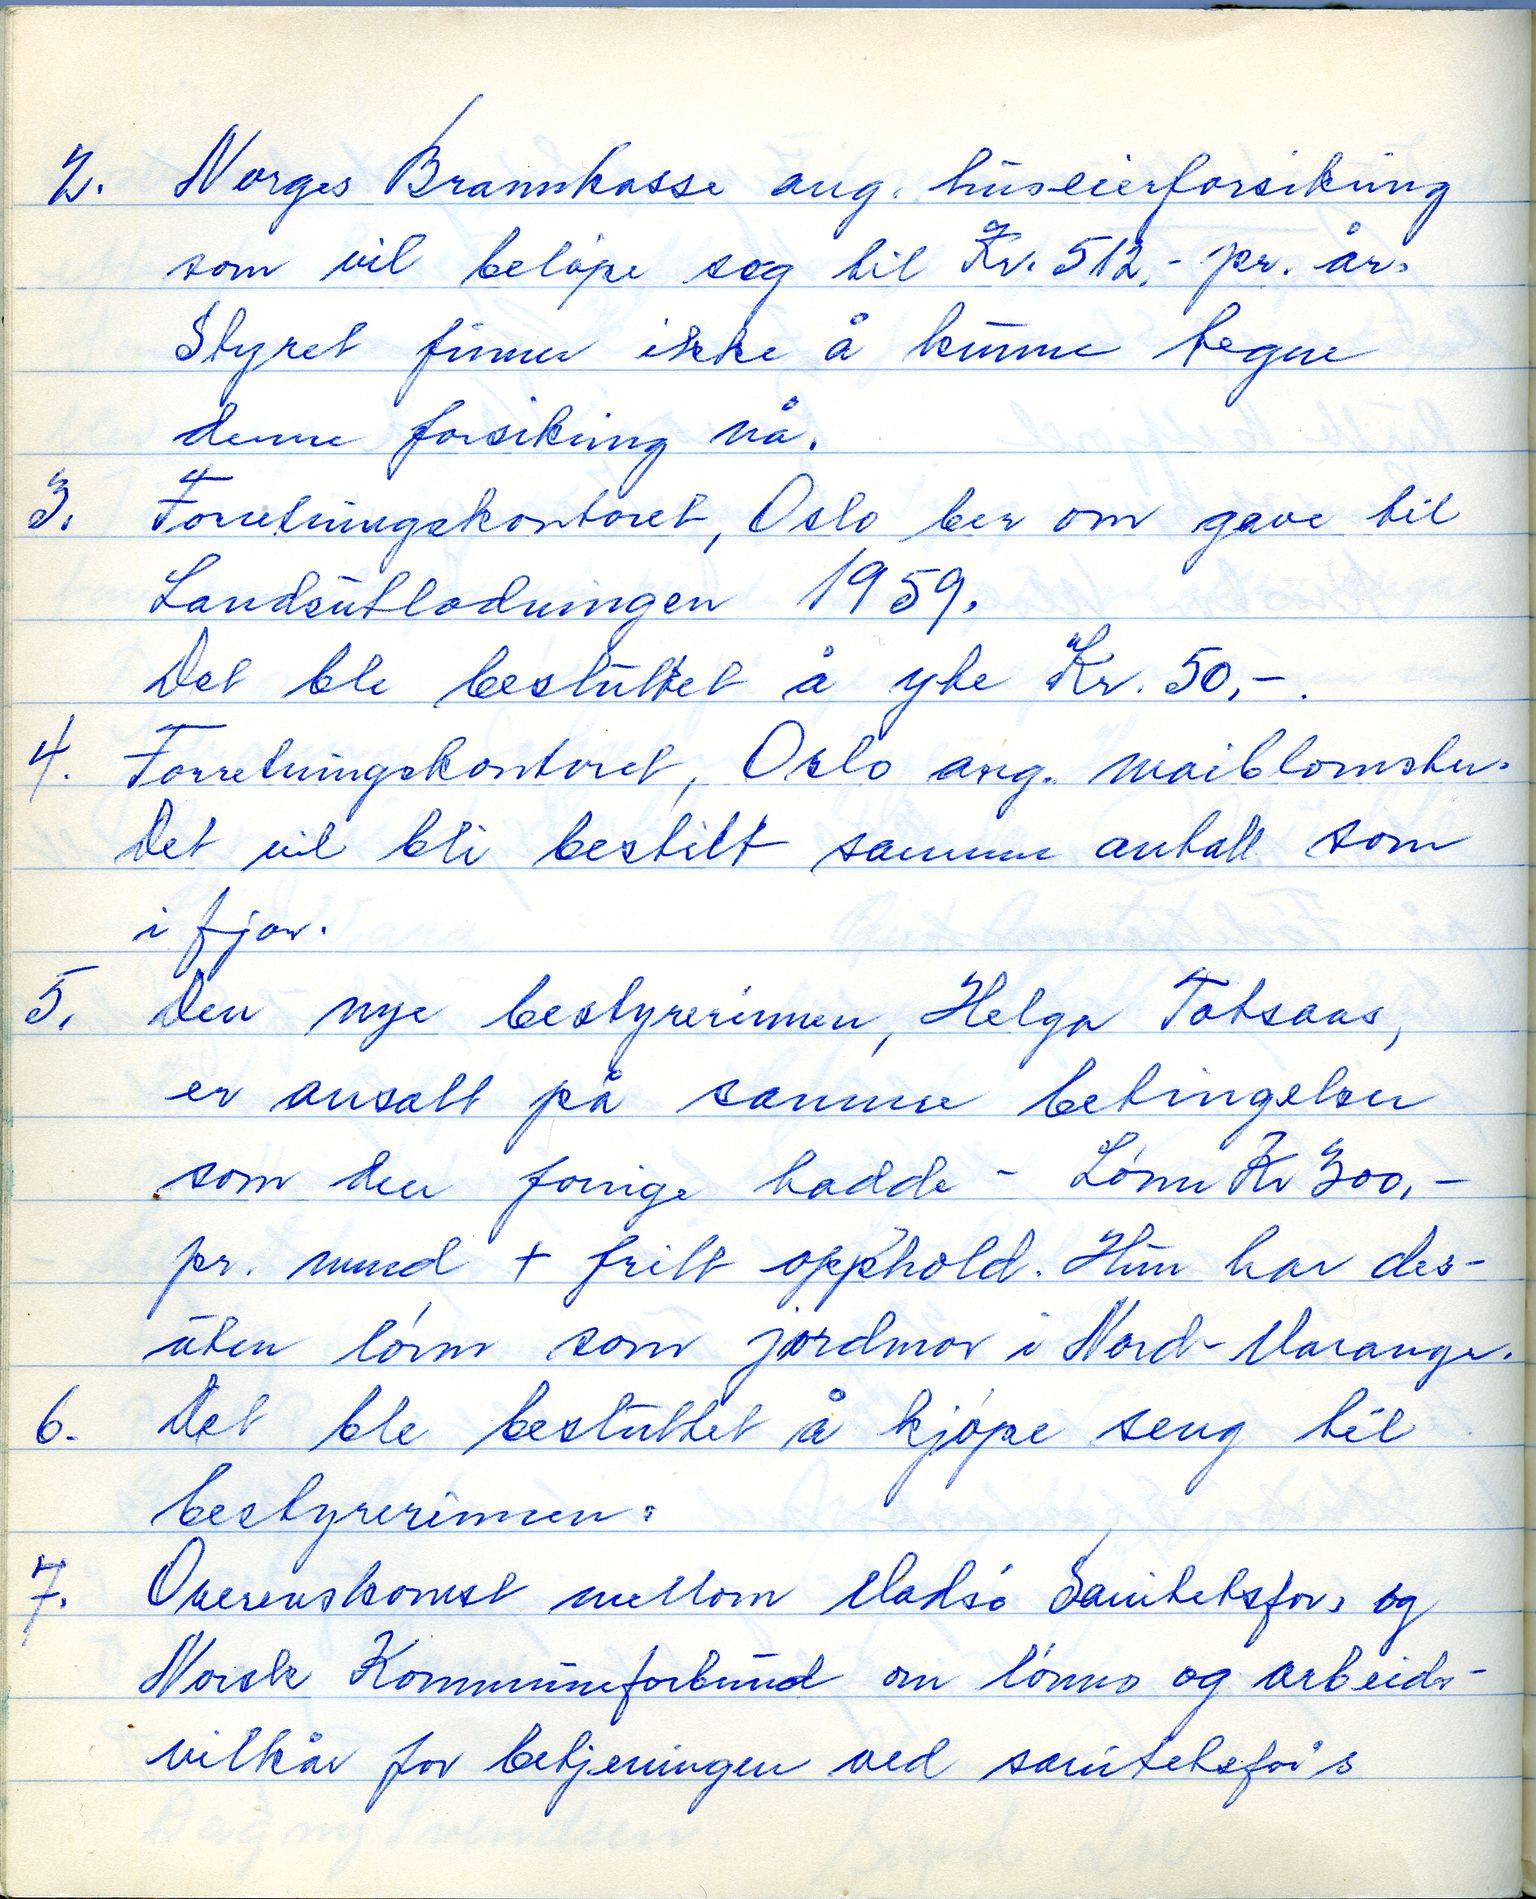 2. Norges Brannkasse ang. huseierforsikring
som vil beløpe seg til Kr. 512,- pr. år.
Styret finner ikke å kunne tegne
denne forsikring nå.
3. Forretningskontoret, Oslo ber om gave til
Landsutlodningen 1959.
Det ble besluttet å yte Kr. 50,-.
4. Forretningskontoret, Oslo ang. maiblomster.
Det vil bli bestilt samme antall som
i fjor.
5. Den nye bestyrerinnen, Helga Totsaas,
er ansatt på samme betingelser
som den forrige hadde - Lønn Kr 300,-
pr. mnd + fritt opphold. Hun har des-
uten lønn som jordmor i Nord-Varanger.
6. Det ble besluttet å kjøpe seng til
bestyrerinnen.
7. Overenskomst mellom Vadsø Sanitetsfor. og
Norsk Kommuneforbund om lønns og arbeids-
vilkår for betjeningen ved sanitetsfor's